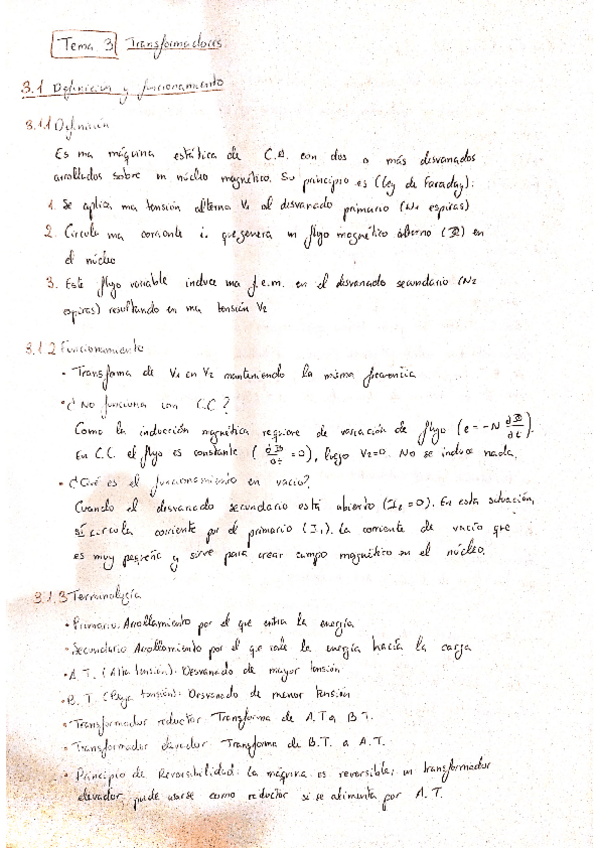 Tema 3 Transformadores
3.1 Definición y funcionamiento
3.1.1 Definición
Es una máquina estática de C.A. con dos o más devanados
arrollados sobre un núcleo magnético. Su principio es (Ley de Faraday):
1. Se aplica una tensión alterna V1 al devanado primario (N1 espiras)
2. Circula una corriente i1 que genera un flujo magnético alterno (Φ) en
el núcleo
3. Este flujo variable induce una f.e.m. en el devanado secundario (N2
espiras) resultando en una tensión V2
3.1.2 Funcionamiento
• Transforma de V1 en V2 manteniendo la misma frecuencia
• ¿No funciona con C.C?
Como la inducción magnética requiere de variación de flujo (e = -N dΦ/dt).
En C.C. el flujo es constante (dΦ/dt = 0), luego V2=0. No se induce nada.
• ¿Qué es el funcionamiento en vacío?
Cuando el devanado secundario está abierto (I2 = 0). En esta situación,
sí circula corriente por el primario (I1). La corriente de vacío que
es muy pequeña y sirve para crear campo magnético en el núcleo.
3.1.3 Terminología
• Primario: Arrollamiento por el que entra la energía
• Secundario: Arrollamiento por el que sale la energía hacia la carga
• A.T. (Alta tensión): Devanado de mayor tensión
• B.T. (Baja tensión): Devanado de menor tensión
• Transformador reductor: Transforma de A.T a B.T.
• Transformador elevador: Transforma de B.T. a A.T.
• Principio de Reversibilidad: La máquina es reversible: un transformador
elevador puede usarse como reductor si se alimenta por A.T.